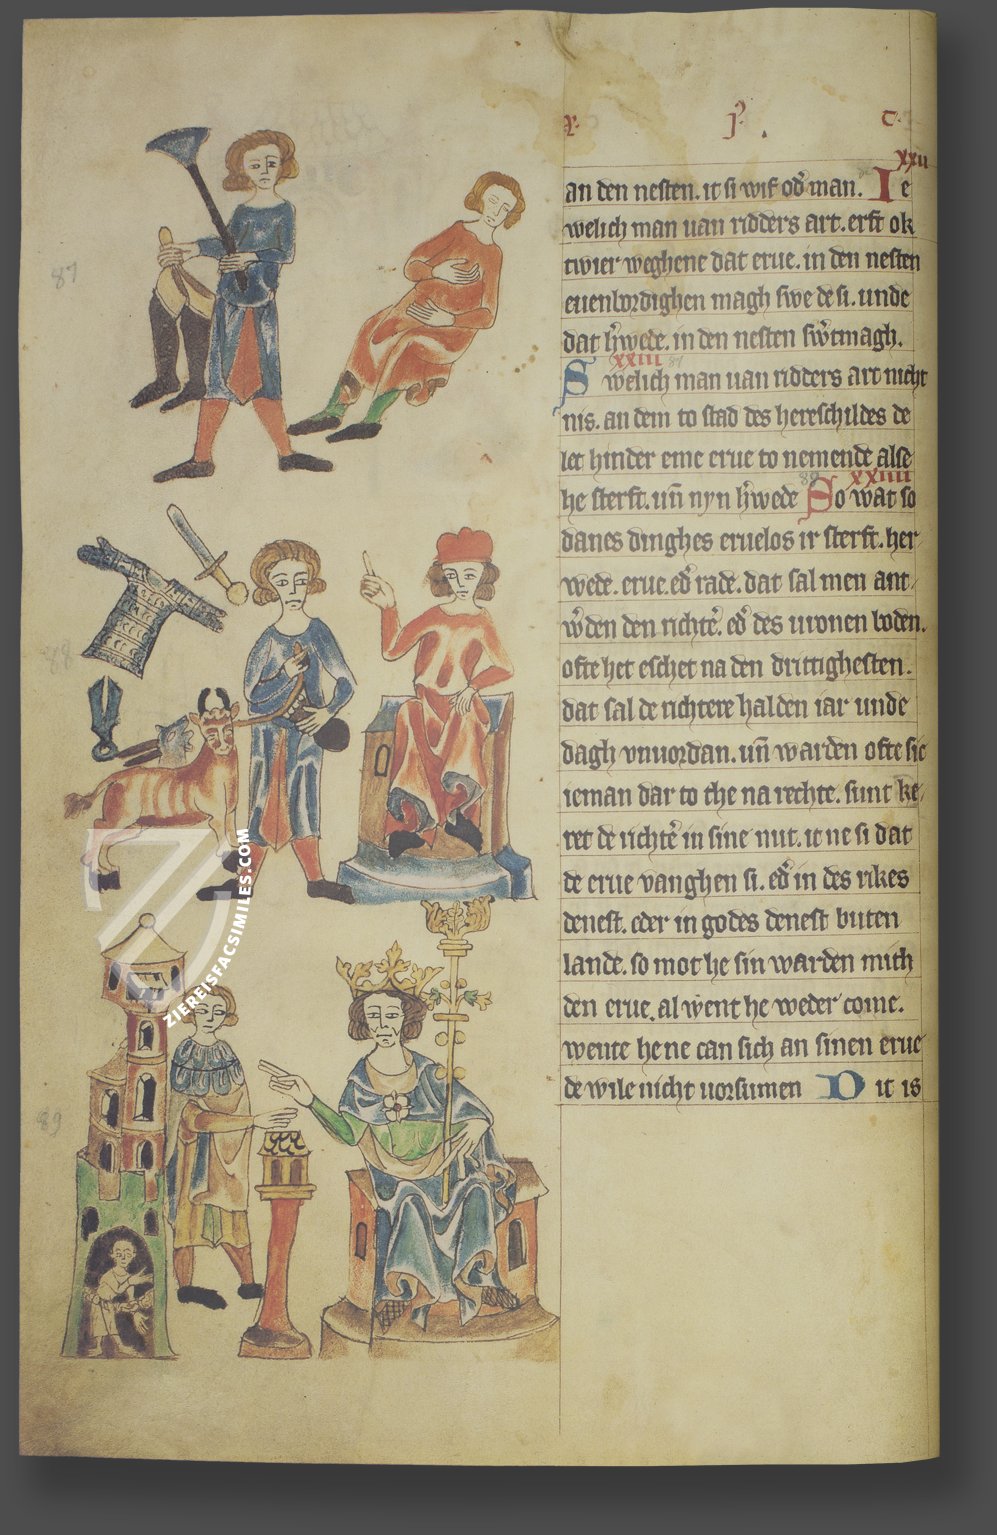 87
88
89
ZIEREISFACSIMILES.COM
xxii
an den nesten. it si wif od᷒ man. Ie
welich man uan ridders art. erft ok
twier weghene dat erue. in den nesten
euenbordighen magh swe de si. unde
dat h᷒wede. in den nesten sw᷒tmagh.
xxiii 87
Swelich man uan ridders art nicht
nis. an dem to stad des hereschildes de
let hinder eme erue to nemende alse
88 xxiiii
he sterft. un̄ nyn h᷒wede So wat so
danes dinghes eruelos ir sterft. her
wede. erue. ed᷒ rade. dat sal men ant
w᷒den den richte᷒. ed᷒ des uronen boden.
ofte het eschet na den drittighesten.
dat sal de richtere halden iar unde
dagh vnuordan. un̄ warden ofte sic
ieman dar to the na rechte. sunt ke
ret de richte᷒ in sine nut. it ne si dat
de erue vanghen si. ed᷒ in des rikes
denest. eder in godes denest buten
lande. so mot he sin warden mith
den erue. al went he weder come.
wente he ne can sich an sinen erue
de wile nicht uorsumen Dit is